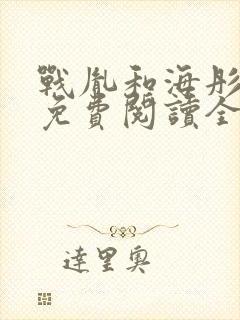 戰胤和海彤
免費閱讀全
達里奧